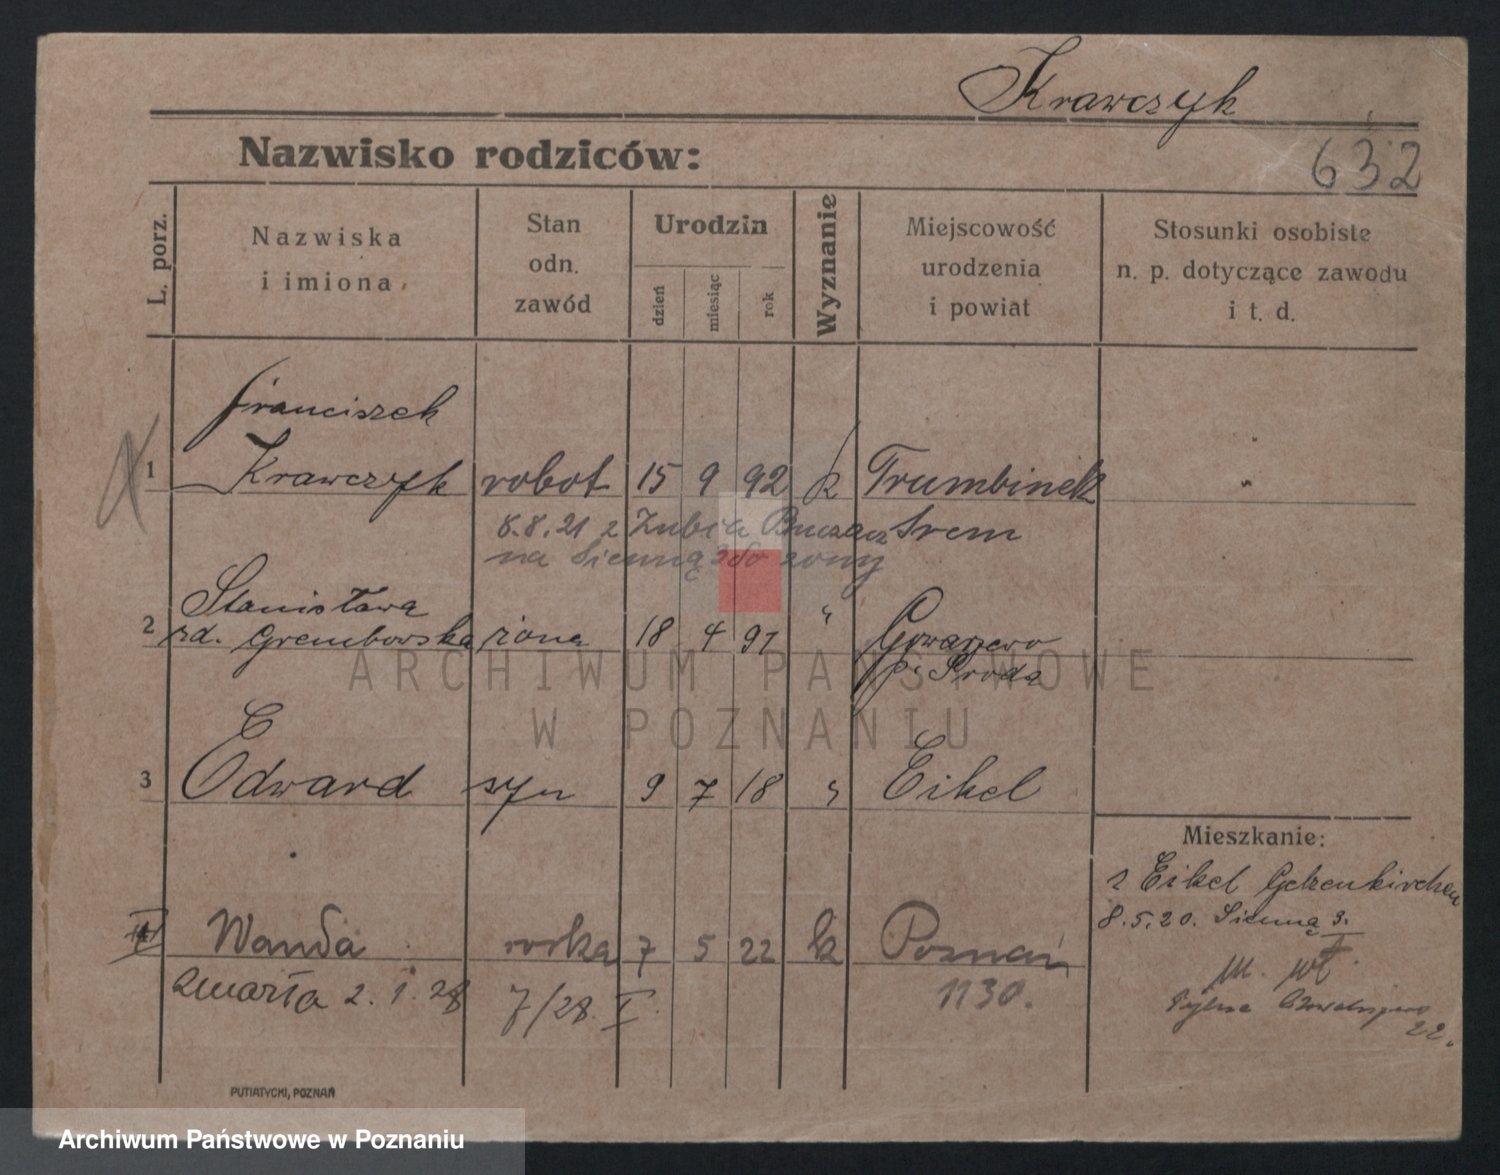 Krawczyk
Nazwisko rodziców:
632
L. porz.
Nazwiska
i imiona
Stan
odn.
zawód
Urodzin
dzień
miesiąc
rok
Wyznanie
Miejscowość
urodzenia
i powiat
Stosunki osobiste
n. p. dotyczące zawodu
i t. d.
Franciszek
1 Krawczyk robot 15 9 92 k Trumbinek
8.8.21 z Buczacz Srem
na Sienną 3 do żony
Stanisława
2 zd. Grembowska żona 18 4 97 "
p. Sroda
3 Edward syn 9 7 18 " Eikel
Mieszkanie:
z Eikel Gelzenkirchen
8.5.20. Sienna 3.
Wanda corka 7 5 22 k Poznań
zmarła 2. 1. 28 7/28. I. 1130.
22.
PUTIATYCKI, POZNAŃ
ARCHIWUM PAŃSTWOWE
W POZNANIU
Archiwum Państwowe w Poznaniu